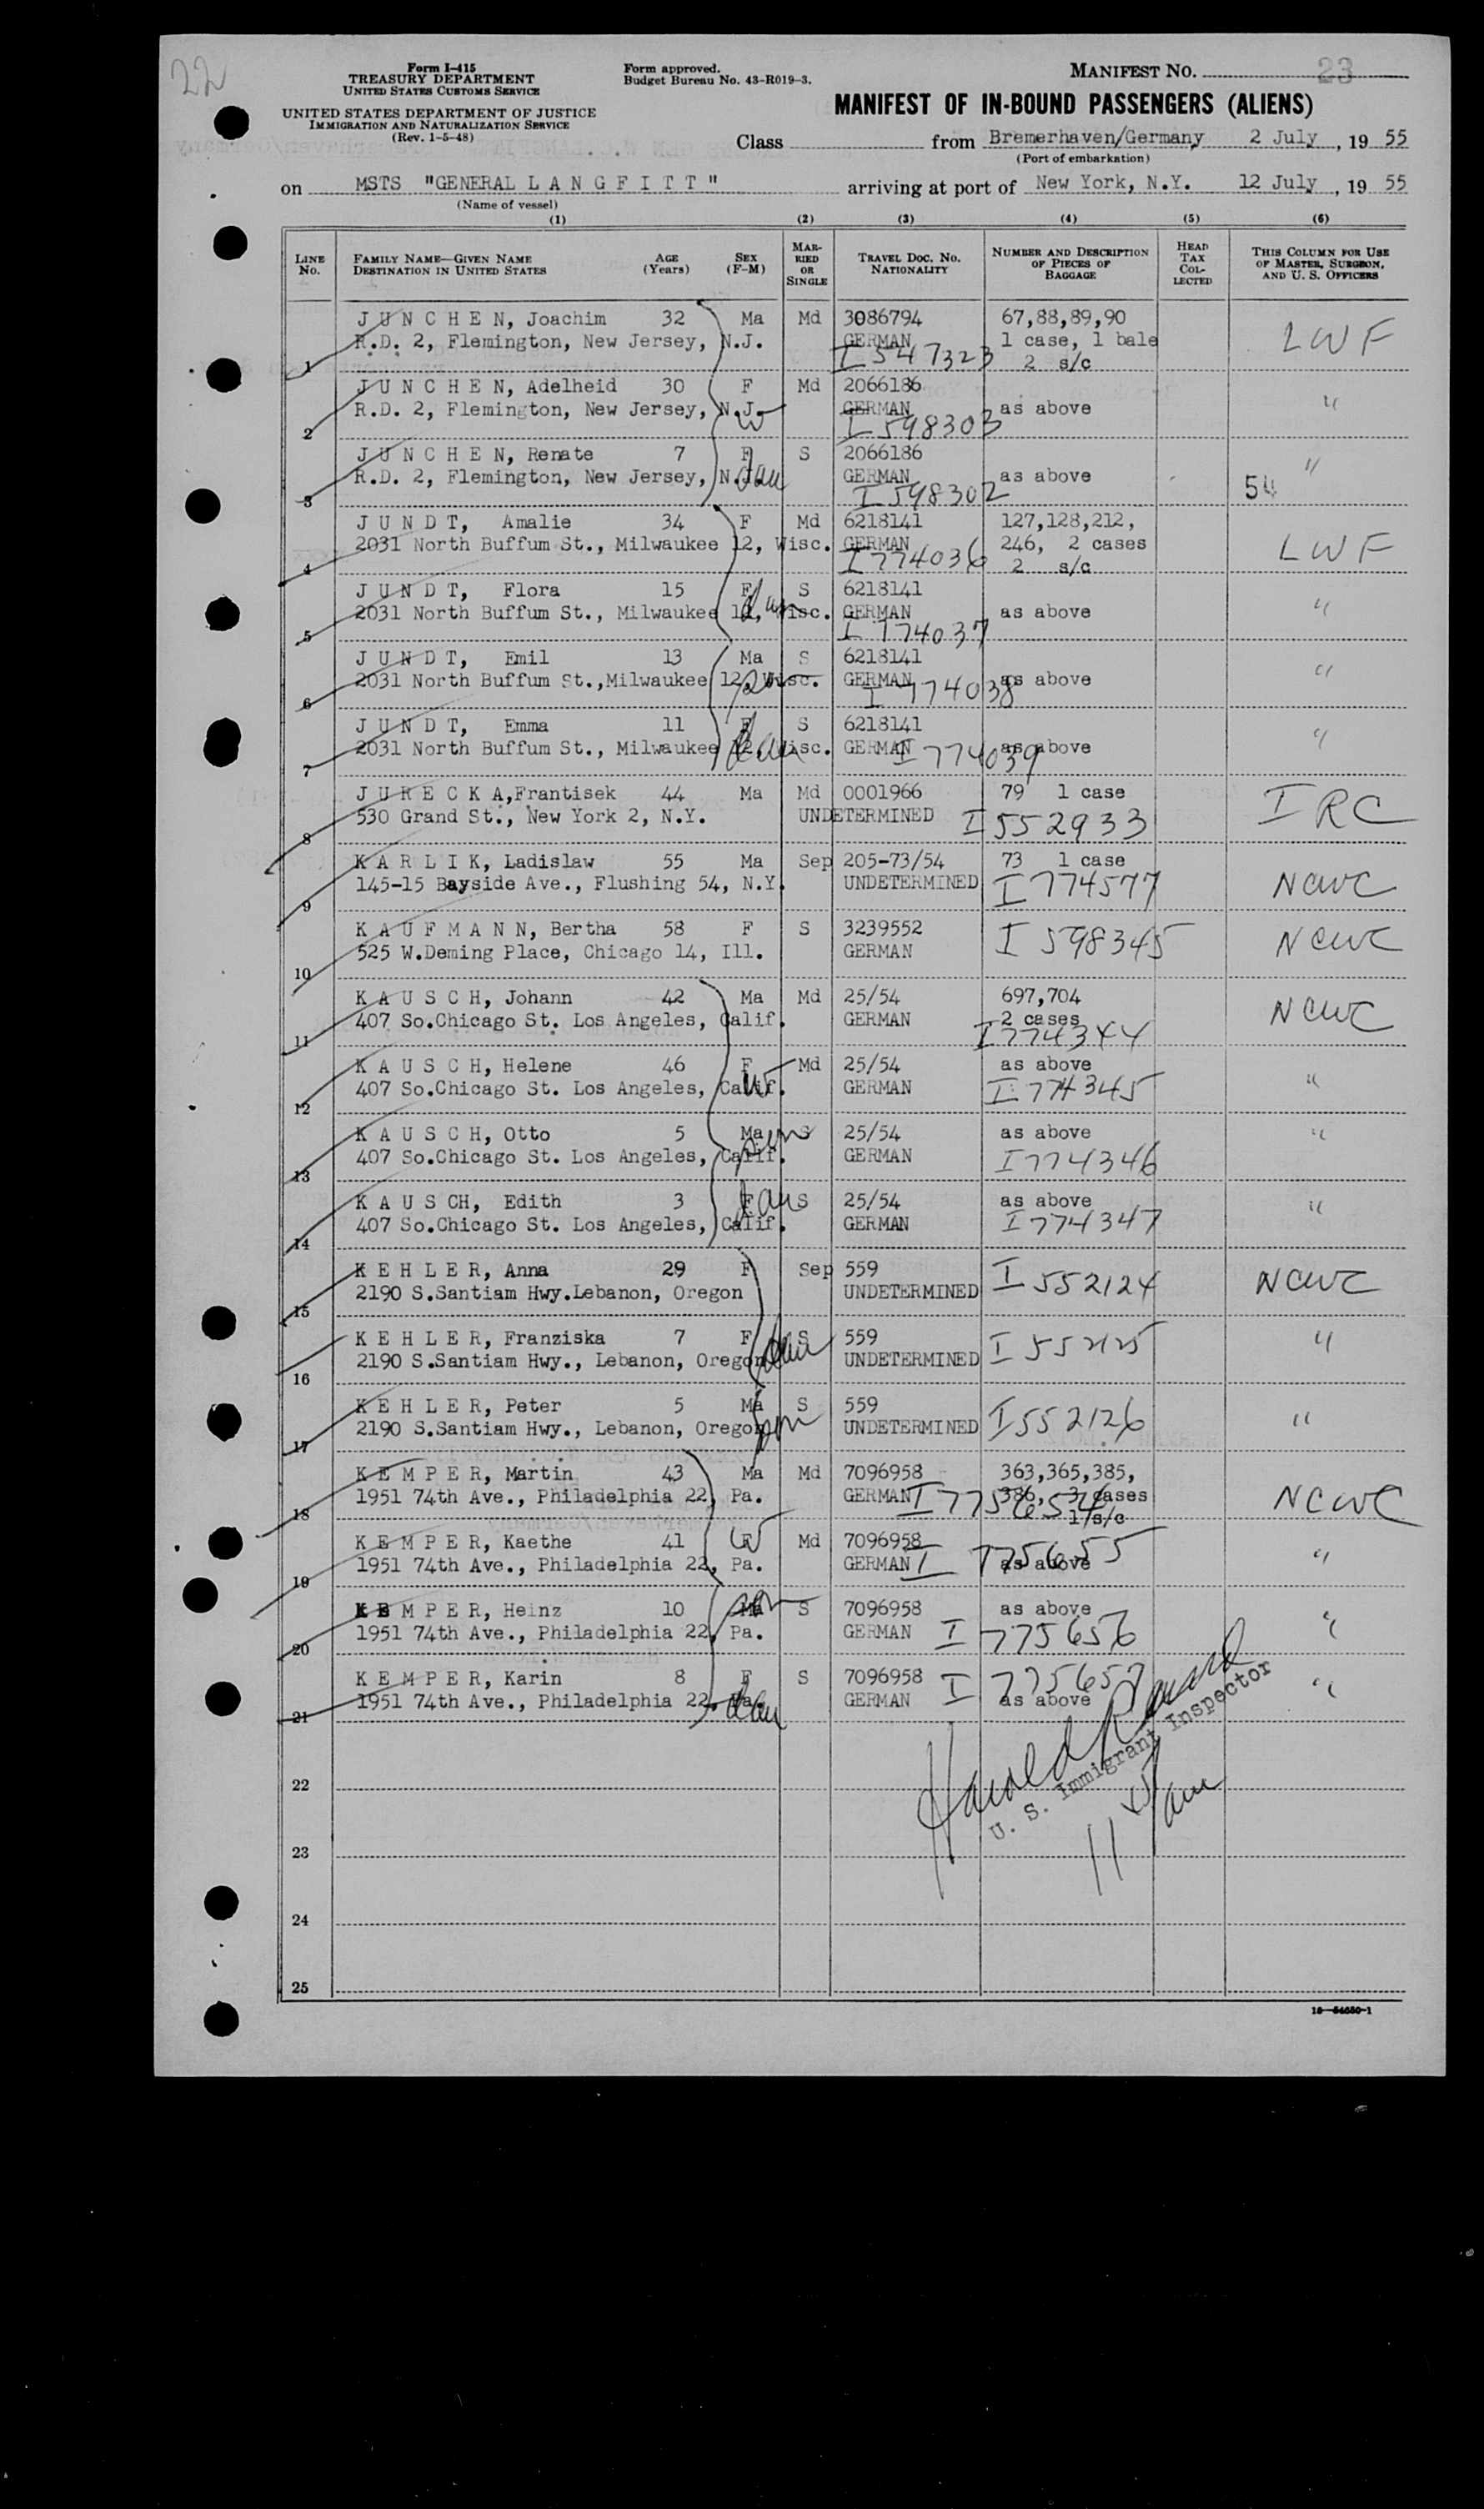 22
Form I-415
TREASURY DEPARTMENT
UNITED STATES CUSTOMS SERVICE
UNITED STATES DEPARTMENT OF JUSTICE
IMMIGRATION AND NATURALIZATION SERVICE
(Rev. 1-5-48)
Form approved.
Budget Bureau No. 43-R019-3.
MANIFEST NO. 23
MANIFEST OF IN-BOUND PASSENGERS (ALIENS)
Class from Bremerhaven/Germany 2 July, 19 55
(Port of embarkation)
on MSTS "GENERAL L A N G F I T T" arriving at port of New York, N.Y. 12 July, 19 55
(Name of vessel)
(1) (2) (3) (4) (5) (6)
LINE No. FAMILY NAME—GIVEN NAME DESTINATION IN UNITED STATES AGE (Years) SEX (F-M) MARRIED OR SINGLE TRAVEL DOC. NO. NATIONALITY NUMBER AND DESCRIPTION OF PIECES OF BAGGAGE HEAD TAX COLLECTED THIS COLUMN FOR USE OF MASTER, SURGEON, AND U. S. OFFICERS
J U N C H E N, Joachim 32 Ma Md 3086794 67,88,89,90 LWF
R.D. 2, Flemington, New Jersey, N.J. GERMAN 1 case, 1 bale
1 I 547323 2 s/c
J U N C H E N, Adelheid 30 F Md 2066186
R.D. 2, Flemington, New Jersey, N.J. W GERMAN as above "
2 I 598303
J U N C H E N, Renate 7 F S 2066186 "
R.D. 2, Flemington, New Jersey, N.J. dau GERMAN as above 54
3 I 598302
J U N D T, Amalie 34 F Md 6218141 127,128,212,
2031 North Buffum St., Milwaukee 12, Wisc. GERMAN 246, 2 cases LWF
4 I 774036 2 s/c
J U N D T, Flora 15 F S 6218141
2031 North Buffum St., Milwaukee 12, Wisc. dau GERMAN as above "
5 I 774037
J U N D T, Emil 13 Ma S 6218141
2031 North Buffum St.,Milwaukee 12, Wisc. son GERMAN as above "
6 I 774038
J U N D T, Emma 11 F S 6218141
2031 North Buffum St., Milwaukee 12, Wisc. dau GERMAN as above "
7 I 774039
J U R E C K A,Frantisek 44 Ma Md 0001966 79 1 case IRC
530 Grand St., New York 2, N.Y. UNDETERMINED I 552933
8
K A R L I K, Ladislaw 55 Ma Sep 205-73/54 73 1 case
145-15 Bayside Ave., Flushing 54, N.Y. UNDETERMINED I 774577 NCWC
9
K A U F M A N N, Bertha 58 F S 3239552 I 598345 NCWC
525 W.Deming Place, Chicago 14, Ill. GERMAN
10
K A U S C H, Johann 42 Ma Md 25/54 697,704 NCWC
407 So.Chicago St. Los Angeles, Calif. GERMAN 2 cases
11 I 774344
K A U S C H, Helene 46 F W Md 25/54 as above
407 So.Chicago St. Los Angeles, Calif. GERMAN I 774345 "
12
K A U S C H, Otto 5 Ma son S 25/54 as above "
407 So.Chicago St. Los Angeles, Calif. GERMAN I 774346
13
K A U S CH, Edith 3 F dau S 25/54 as above "
407 So.Chicago St. Los Angeles, Calif. GERMAN I 774347
14
K E H L E R, Anna 29 F Sep 559 I 552124 NCWC
2190 S.Santiam Hwy.Lebanon, Oregon UNDETERMINED
15
K E H L E R, Franziska 7 F dau S 559 I 552125 "
2190 S.Santiam Hwy., Lebanon, Oregon UNDETERMINED
16
K E H L E R, Peter 5 Ma son S 559 I 552126 "
2190 S.Santiam Hwy., Lebanon, Oregon UNDETERMINED
17
K E M P E R, Martin 43 Ma Md 7096958 363,365,385,
1951 74th Ave., Philadelphia 22, Pa. GERMAN I 775654 386, 3 cases NCWC
18 1 s/c
K E M P E R, Kaethe 41 F W Md 7096958
1951 74th Ave., Philadelphia 22, Pa. GERMAN I 775655 as above "
19
K E M P E R, Heinz 10 Ma son S 7096958 as above "
1951 74th Ave., Philadelphia 22, Pa. GERMAN I 775656
20
K E M P E R, Karin 8 F S 7096958 I 775657
1951 74th Ave., Philadelphia 22, Pa. dau GERMAN as above "
21
Harold
U. S. Immigrant Inspector
22
11 45 am
23
24
25
16—54650-1